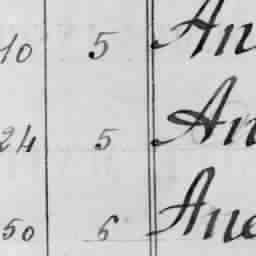 10 5 An
24 5 An
50 6 Ane